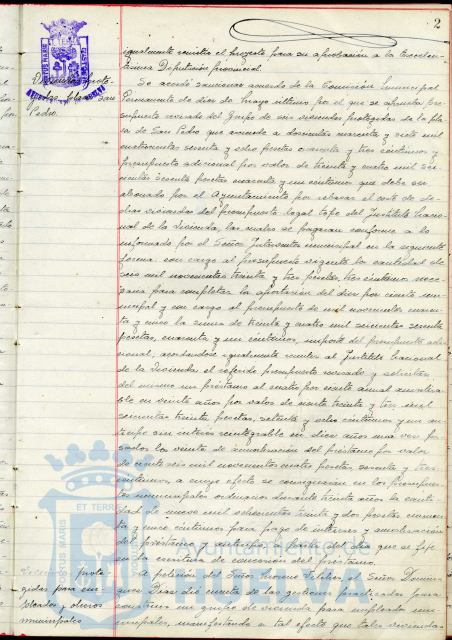 2
igualmente remitir el proyecto para su aprobación a la Excelen-
tísima Diputación provincial.
Se acordó sancionar acuerdo de la Comisión municipal
Permanente de diez de mayo último por el que se aprueba pre-
supuesto revisado del Grupo de seis viviendas protegidas de la pla-
za de San Pedro que asciende a doscientas cuarenta y siete mil
cuatrocientas sesenta y ocho pesetas ochenta y tres céntimos y
presupuesto adicional por valor de treinta y cuatro mil seis-
cientas sesenta pesetas cuarenta y un céntimos que debe ser
abonado por el Ayuntamiento por rebasar el coste de di-
chas viviendas del presupuesto legal tope del Instituto Nacio-
nal de la Vivienda, las cuales se pagarán conforme a lo
informado por el Señor Interventor municipal en la siguiente
forma: con cargo al presupuesto vigente la cantidad de
seis mil novecientas treinta y tres pesetas, tres céntimos nece-
saria para completar la aportación del diez por ciento mu-
nicipal y con cargo al presupuesto de mil novecientos cuaren-
ta y cinco la suma de treinta y cuatro mil seiscientas sesenta
pesetas, cuarenta y un céntimos, importe del presupuesto adi-
cional, acordándose igualmente remitir al Instituto Nacional
de la Vivienda el referido presupuesto revisado y solicitar
del mismo un préstamo al cuatro por ciento anual amortiza-
ble en veinte años por valor de treinta y tres mil
seiscientas treinta pesetas, setenta y ocho céntimos y un an-
ticipo sin interés reintegrable en diez años una vez pa-
sados los veinte de amortización del préstamo por valor
de veinte seis mil novecientas cuatro pesetas, sesenta y tres
céntimos, a cuyo efecto se consignarán en los Presupues-
tos municipales ordinarios durante treinta años la canti-
dad de nueve mil ochocientas treinta y dos pesetas cincuen-
ta y cinco céntimos para pago de interés y amortización
del préstamo y anticipo a partir del día que se fije
en la escritura de concesión del préstamo.
A petición del Señor Moreno el Señor Domín-
guez Díaz dió cuenta de las gestiones practicadas para
construir un grupo de viviendas para empleados mu-
nicipales, manifestando a tal efecto que tales viviendas
Viviendas prote-
gidas plaza San
Pedro.
Viviendas prote-
gidas para em-
pleados y obreros
municipales
PORTUS MARIS
ET TERRAE
Ayuntamiento de